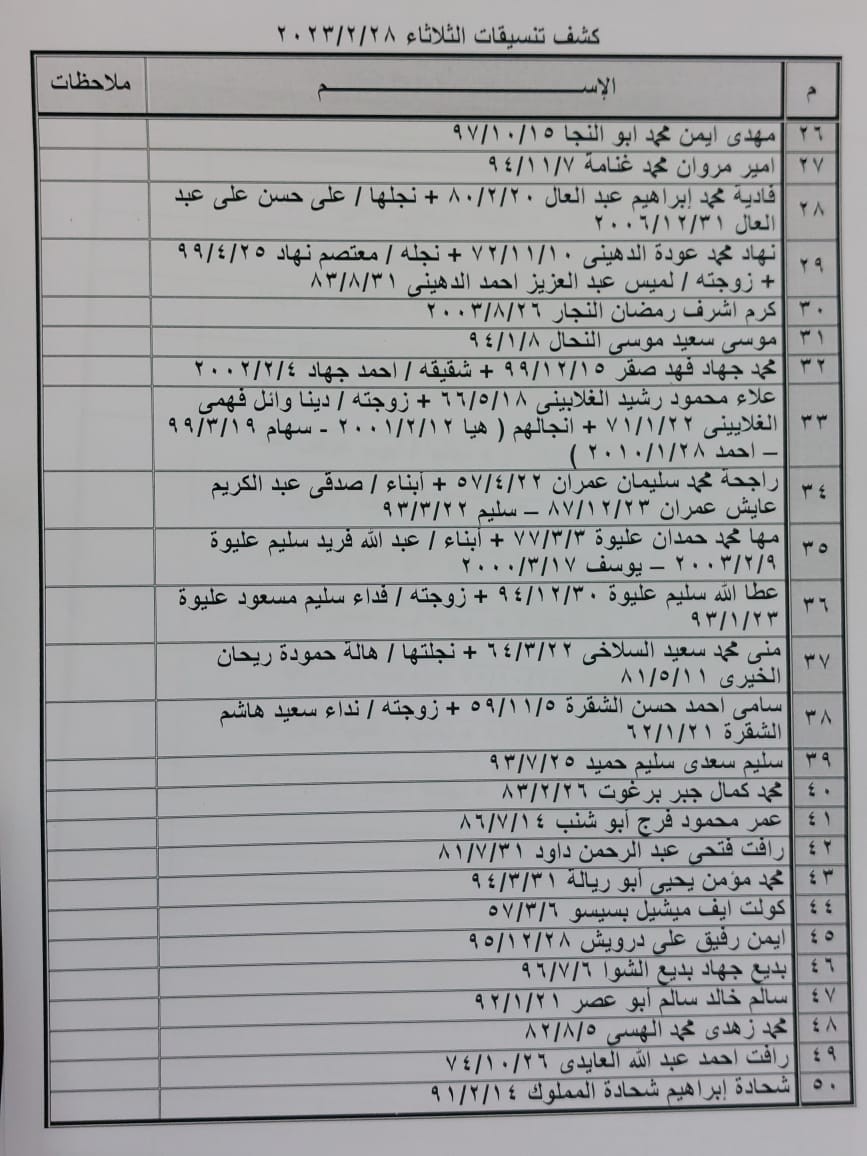 كشف تنسيقات الثلاثاء ٢٠٢٣/٢/٢٨
م الإســـــــــم ملاحظات
٢٦ مهدى ايمن محمد ابو النجا ٩٧/١٠/١٥
٢٧ امير مروان محمد غنامة ٩٤/١١/٧
٢٨ فادية محمد إبراهيم عبد العال ٨٠/٢/٢٠ + نجلها / على حسن على عبد
العال ٢٠٠٦/١٢/٣١
٢٩ نهاد محمد عودة الدهينى ٧٢/١١/١٠ + نجله / معتصم نهاد ٩٩/٤/٢٥
+ زوجته / لميس عبد العزيز احمد الدهينى ٨٣/٨/٣١
٣٠ كرم اشرف رمضان النجار ٢٠٠٣/٨/٢٦
٣١ موسى سعيد موسى النحال ٩٤/١/٨
٣٢ محمد جهاد فهد صقر ٩٩/١٢/١٥ + شقيقه / احمد جهاد ٢٠٠٢/٢/٤
٣٣ علاء محمود رشيد الغلايينى ٦٦/٥/١٨ + زوجته / دينا وائل فهمى
الغلايينى ٧١/١/٢٢ + انجالهم ( هيا ٢٠٠١/٢/١٢ - سهام ٩٩/٣/١٩
– احمد ٢٠١٠/١/٢٨ )
٣٤ راجحة محمد سليمان عمران ٥٧/٤/٢٢ + أبناء / صدقى عبد الكريم
عايش عمران ٨٧/١٢/٢٣ – سليم ٩٣/٣/٢٢
٣٥ مها محمد حمدان عليوة ٧٧/٣/٣ + أبناء / عبد الله فريد سليم عليوة
٢٠٠٣/٢/٩ – يوسف ٢٠٠٠/٣/١٧
٣٦ عطا الله سليم عليوة ٩٤/١٢/٣٠ + زوجته / فداء سليم مسعود عليوة
٩٣/١/٢٣
٣٧ منى محمد سعيد السلاخى ٦٤/٣/٢٢ + نجلتها / هالة حمودة ريحان
الخيرى ٨١/٥/١١
٣٨ سامى احمد حسن الشقرة ٥٩/١١/٥ + زوجته / نداء سعيد هاشم
الشقرة ٦٢/١/٢١
٣٩ سليم سعدى سليم حميد ٩٣/٧/٢٥
٤٠ محمد كمال جبر برغوت ٨٣/٢/٢٦
٤١ عمر محمود فرج أبو شنب ٨٦/٧/١٤
٤٢ رافت فتحى عبد الرحمن داود ٨١/٧/٣١
٤٣ محمد مؤمن يحيى أبو ريالة ٩٤/٣/٣١
٤٤ كولت ايف ميشيل بسيسو ٥٧/٣/٦
٤٥ ايمن رفيق على درويش ٩٥/١٢/٢٨
٤٦ بديع جهاد بديع الشوا ٩٦/٧/٦
٤٧ سالم خالد سالم أبو عصر ٩٢/١/٢١
٤٨ محمد زهدى محمد الهسى ٨٢/٨/٥
٤٩ رافت احمد عبد الله العايدى ٧٤/١٠/٢٦
٥٠ شحادة إبراهيم شحادة المملوك ٩١/٢/١٤